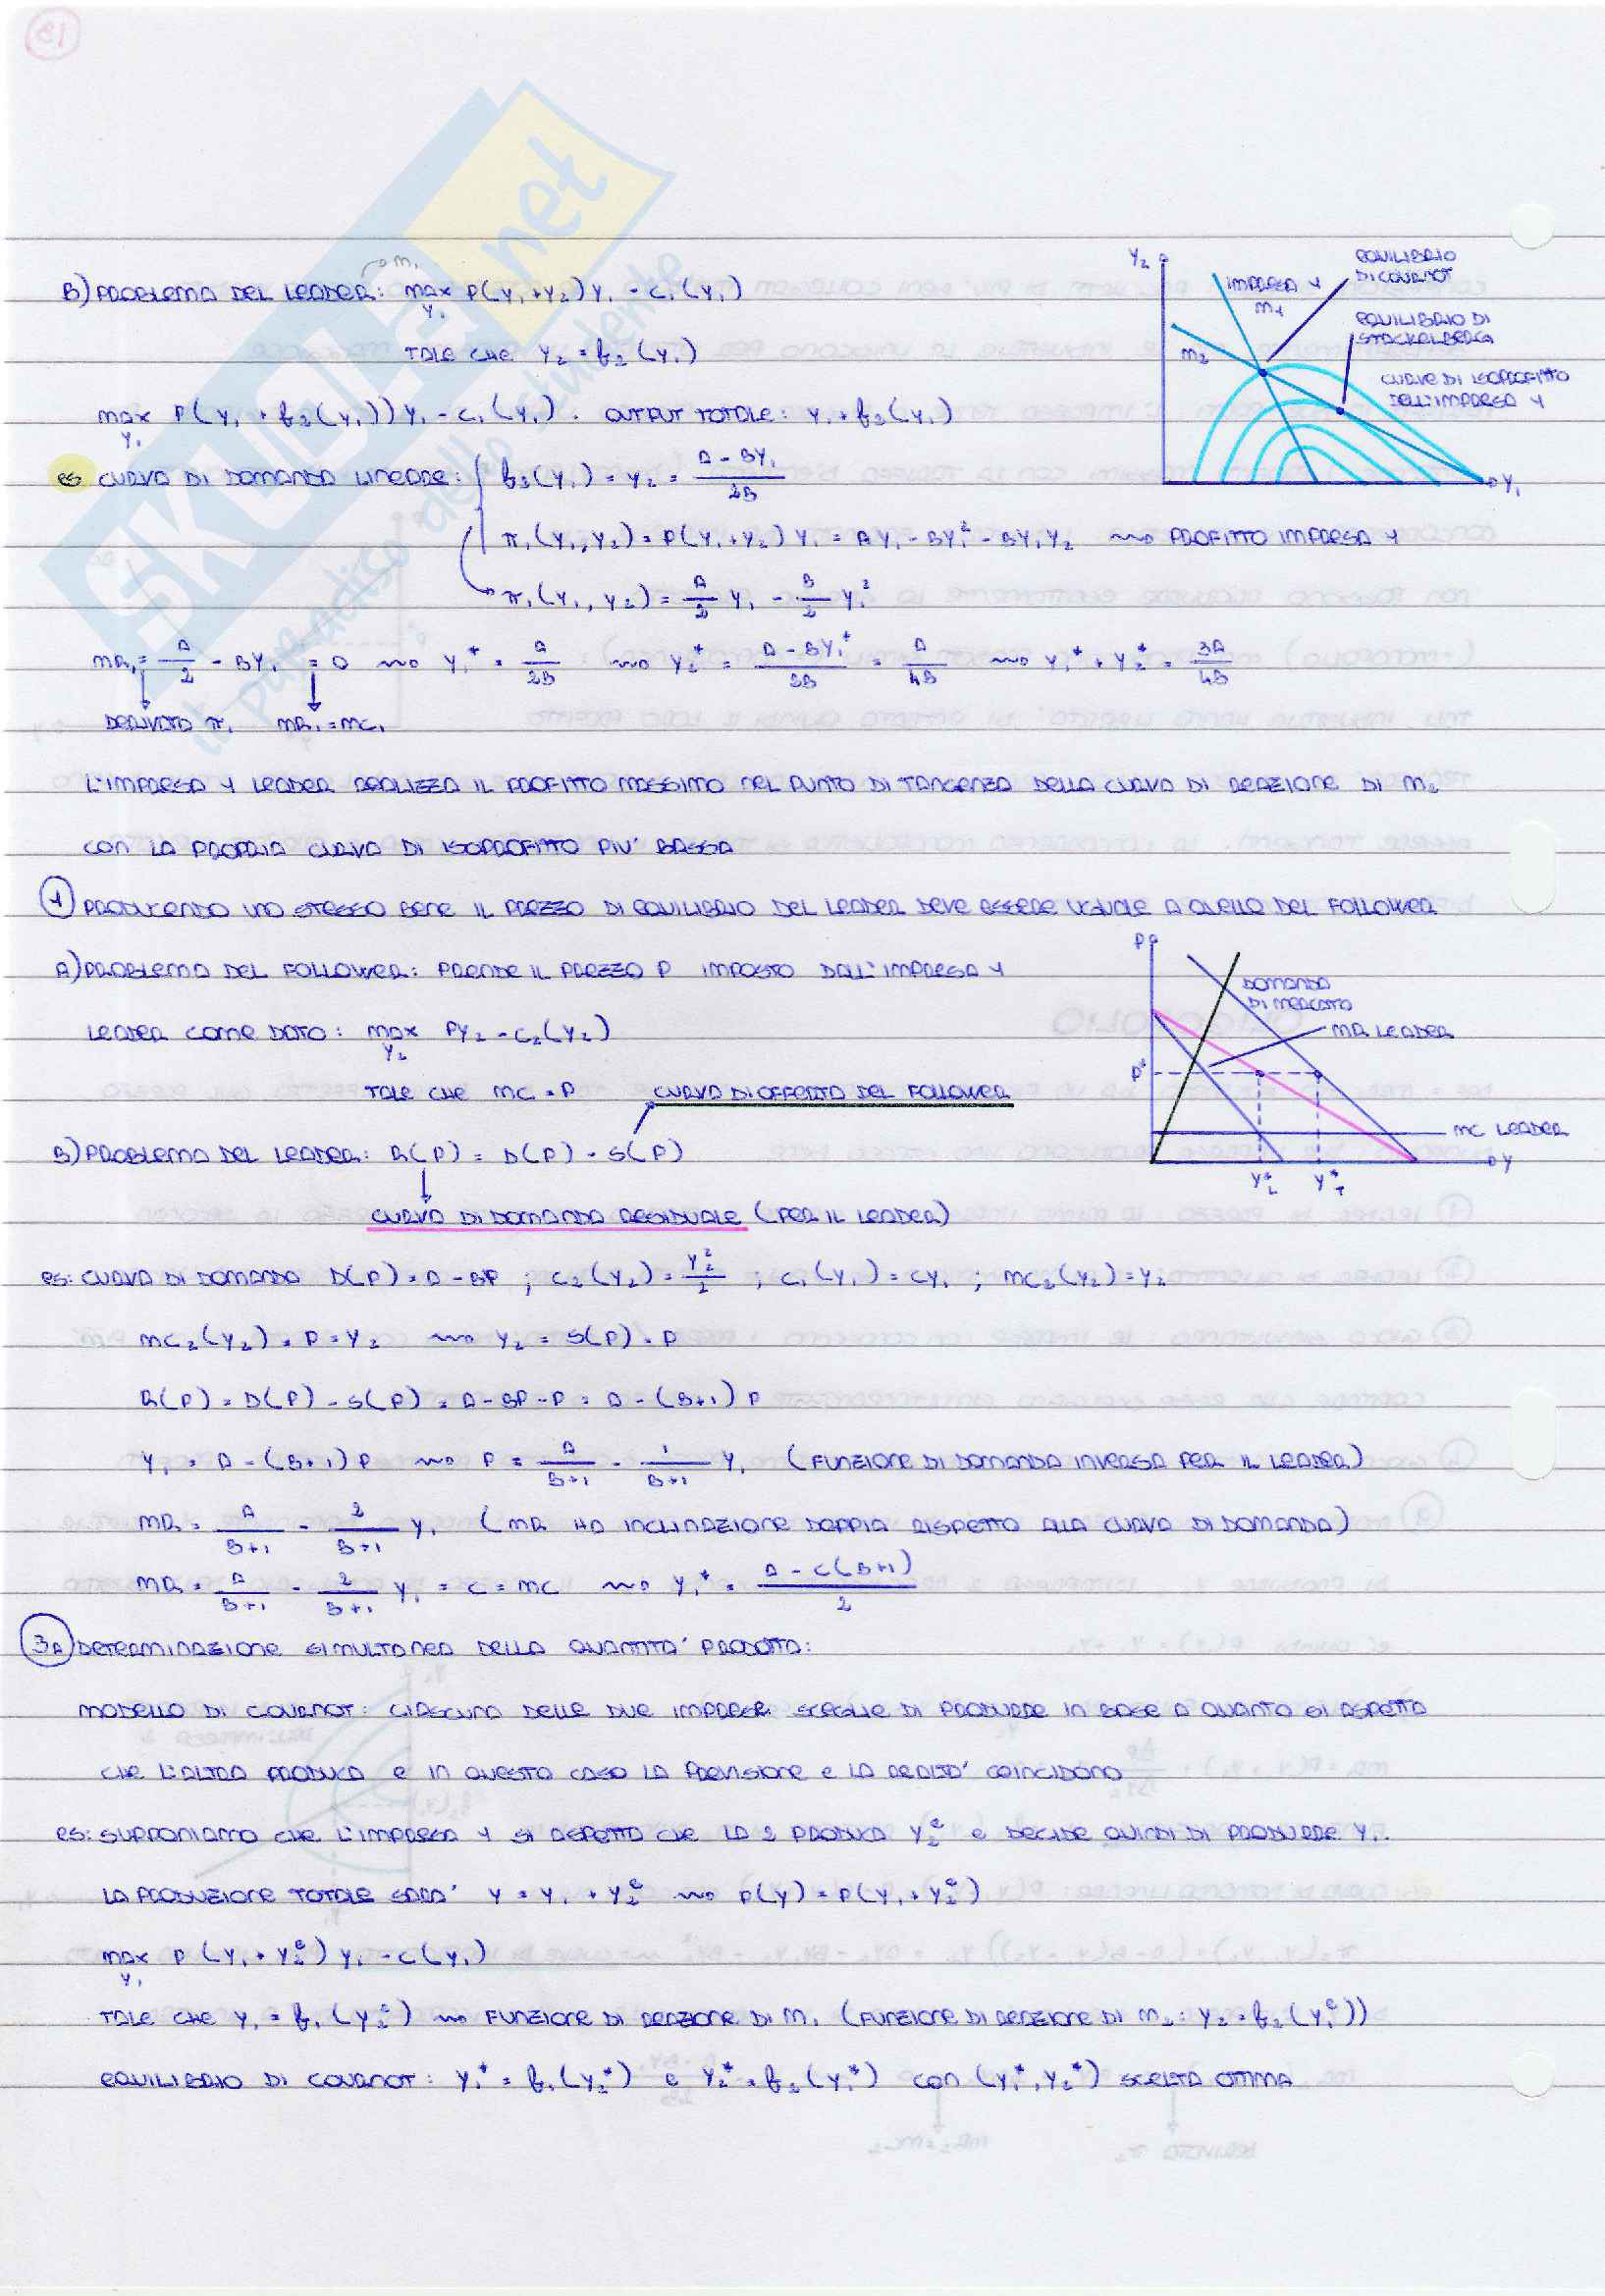 SKUOLA.net
il paradiso dello studente
B) PROBLEMA DEL LEADER: max P(Y₁+Y₂)Y₁ - C₁(Y₁)
Y₁
M₁
TALE CHE Y₂ = f₂(Y₁)
max P(Y₁ + f₂(Y₁))Y₁ - C₁(Y₁). OUTPUT TOTALE: Y₁ + f₂(Y₁)
Y₁
Y₂
EQUILIBRIO
DI COURNOT
IMPRESA 1
M₁
M₂
EQUILIBRIO DI
STACKELBERG
CURVE DI ISOPROFITTO
DELL'IMPRESA 1
Y₁
es CURVA DI DOMANDA LINEARE: f₂(Y₁) = Y₂ = (A - BY₁)/2B
π₁(Y₁,Y₂) = P(Y₁+Y₂)Y₁ = AY₁ - BY₁² - BY₁Y₂ ⇝ PROFITTO IMPRESA 1
π₁(Y₁,Y₂) = A/2 Y₁ - B/2 Y₁²
MR₁ = A/2 - BY₁ = 0 ⇝ Y₁* = A/2B ⇝ Y₂* = (A - BY₁*)/2B = A/4B ⇝ Y₁* + Y₂* = 3A/4B
DERIVATA π₁ MR₁ = MC₁
L'IMPRESA 1 LEADER REALIZZA IL PROFITTO MASSIMO NEL PUNTO DI TANGENZA DELLA CURVA DI REAZIONE DI M₂
CON LA PROPRIA CURVA DI ISOPROFITTO PIU' BASSA
1) PRODUCENDO UNO STESSO BENE IL PREZZO DI EQUILIBRIO DEL LEADER DEVE ESSERE UGUALE A QUELLO DEL FOLLOWER
A) PROBLEMA DEL FOLLOWER: PRENDE IL PREZZO P IMPOSTO DALL'IMPRESA 1
LEADER COME DATO: max PY₂ - C₂(Y₂)
Y₂
TALE CHE MC = P CURVA DI OFFERTA DEL FOLLOWER
B) PROBLEMA DEL LEADER: R(P) = D(P) - S(P)
CURVA DI DOMANDA RESIDUALE (PER IL LEADER)
P
DOMANDA
DI MERCATO
MR LEADER
P*
MC LEADER
Y
Y*L Y*T
es: CURVA DI DOMANDA D(P) = A - BP ; C₂(Y₂) = Y₂²/2 ; C₁(Y₁) = CY₁ ; MC₂(Y₂) = Y₂
MC₂(Y₂) = P = Y₂ ⇝ Y₂ = S(P) = P
R(P) = D(P) - S(P) = A - BP - P = A - (B+1)P
Y₁ = A - (B+1)P ⇝ P = A/(B+1) - 1/(B+1) Y₁ (FUNZIONE DI DOMANDA INVERSA PER IL LEADER)
MR = A/(B+1) - 2/(B+1) Y₁ (MR HA INCLINAZIONE DOPPIA RISPETTO ALLA CURVA DI DOMANDA)
MR = A/(B+1) - 2/(B+1) Y₁ = C = MC ⇝ Y₁* = (A - C(B+1))/2
3A) DETERMINAZIONE SIMULTANEA DELLA QUANTITA' PRODOTTA:
MODELLO DI COURNOT: CIASCUNA DELLE DUE IMPRESE SCEGLIE DI PRODURRE IN BASE A QUANTO SI ASPETTA
CHE L'ALTRA PRODUCA E IN QUESTO CASO LA PREVISIONE E LA REALTA' COINCIDONO
es: SUPPONIAMO CHE L'IMPRESA 1 SI ASPETTA CHE LA 2 PRODUCA Y₂ᵉ E DECIDE QUINDI DI PRODURRE Y₁.
LA PRODUZIONE TOTALE SARA' Y = Y₁ + Y₂ᵉ ⇝ P(Y) = P(Y₁ + Y₂ᵉ)
max P(Y₁ + Y₂ᵉ)Y₁ - C(Y₁)
Y₁
TALE CHE Y₁ = f₁(Y₂ᵉ) ⇝ FUNZIONE DI REAZIONE DI M₁ (FUNZIONE DI REAZIONE DI M₂: Y₂ = f₂(Y₁ᵉ))
EQUILIBRIO DI COURNOT: Y₁* = f₁(Y₂*) E Y₂* = f₂(Y₁*) CON (Y₁*,Y₂*) SCELTA OTTIMA